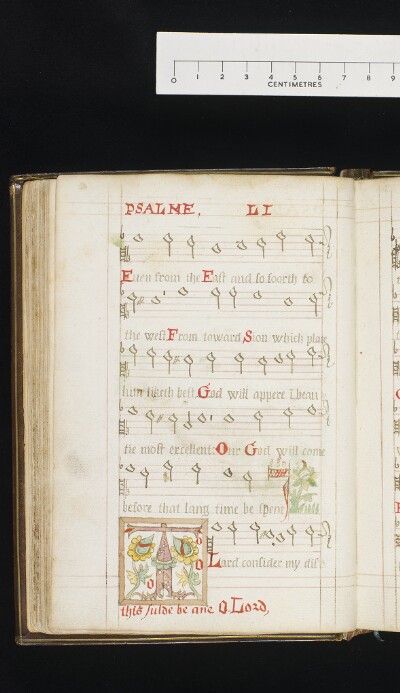 0 1 2 3 4 5 6 7 8 9
CENTIMETRES
PSALME. LI
Euen from the East and so foorth to
the west From toward Sion which place
him liketh best God will appere î beau
tie most excellent Our God will come
before that lang time be spent
O Lord consider my dis
this sulde be ane O Lord,